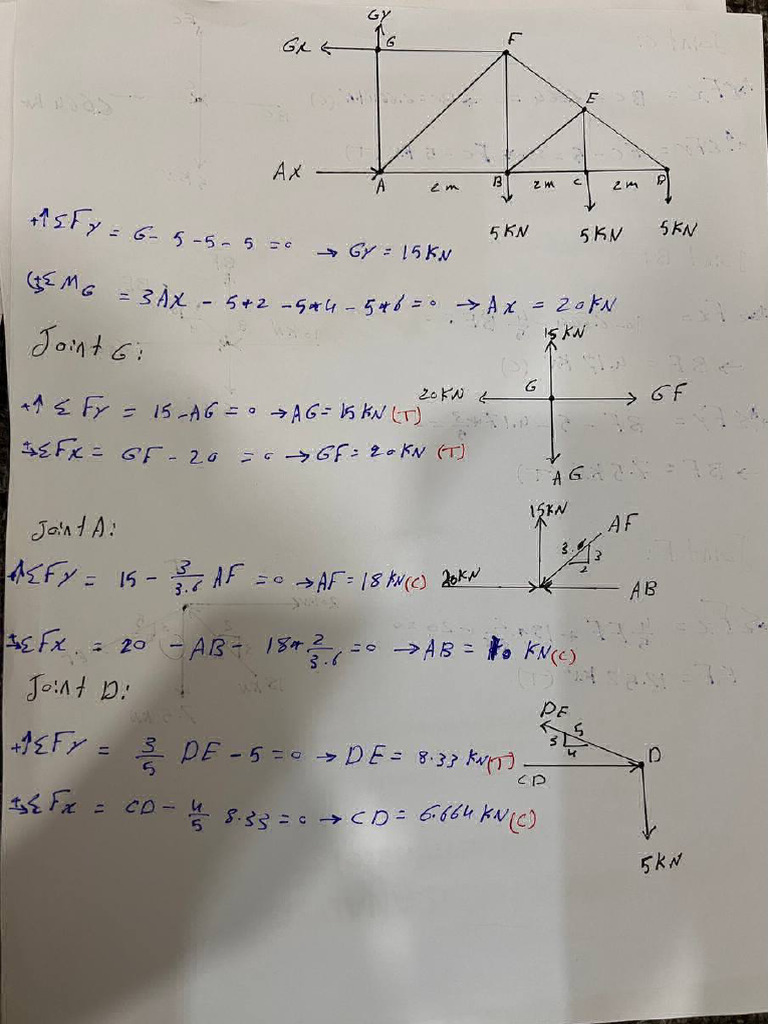 GY
Gx G F
E
Ax A 2m B 2m C 2m D
5KN 5KN 5KN
+↑ΣFy = G - 5 - 5 - 5 = 0 → GY = 15KN
(+ΣMG = 3Ax - 5*2 - 5*4 - 5*6 = 0 → Ax = 20KN
Joint G:
15KN
20KN G GF
AG
+↑ΣFy = 15 - AG = 0 → AG = 15KN (T)
+→ΣFx = GF - 20 = 0 → GF = 20KN (T)
Joint A:
15KN
AF
3.6 3
2
20KN AB
↑ΣFy = 15 - 3/3.6 AF = 0 → AF = 18KN (C)
+→ΣFx = 20 - AB - 18*2/3.6 = 0 → AB = 10 KN (C)
Joint D:
DE
5
3
4
D
CD
5KN
+↑ΣFy = 3/5 DE - 5 = 0 → DE = 8.33 KN (T)
+→ΣFx = CD - 4/5 8.33 = 0 → CD = 6.664 KN (C)